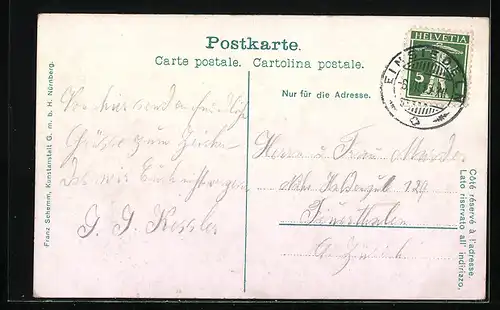 Postkarte.
Carte postale. Cartolina postale.
Nur für die Adresse.
HELVETIA
5
EINSIEDELN
Von hier senden
Grüsse zum Zeichen
das wir Euch nicht vergessen
Kessler
Herrn und Frau
129
Feuerthalen
Zürich
Côté réservé à l'adresse.
Lato riservato all' indirizzo.
Franz Schemm, Kunstanstalt G. m. b. H. Nürnberg.